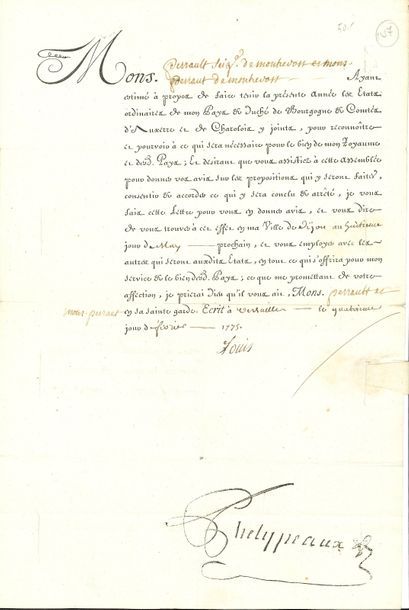 157
Mons. perrault Seigr. de montrevost et mons
perraut de montrevost Ayant
estimé à propos de faire tenir la présente Année les Etats
ordinaires de mon Pays & Duché de Bourgogne & Comtés
d'Auxerre et de Charolois y joints, pour reconnoître
et pourvoir à ce qui sera nécessaire pour le bien de mon Royaume
et desd. Pays; Et désirant que vous assistiez à cette Assemblée
pour donner vos avis sur les propositions qui y seront faites,
consentir & accorder ce qui y sera conclu & arrêté, je vous
fais cette Lettre pour vous en donner avis, et vous dire
de vous trouver à cet effet en ma Ville de Dijon au huitieme
jour de May prochain, et vous employer avec les
autres qui seront auxdits Etats, en tout ce qui s'offrira pour mon
service & le bien desd. Pays; ce que me promettant de votre
affection, je prierai Dieu qu'il vous ait, Mons. perrault et
mons. perraut en sa sainte garde. Ecrit à Versailles le quatrieme
jour de fevrier 1775.
Louis
Phelypeaux